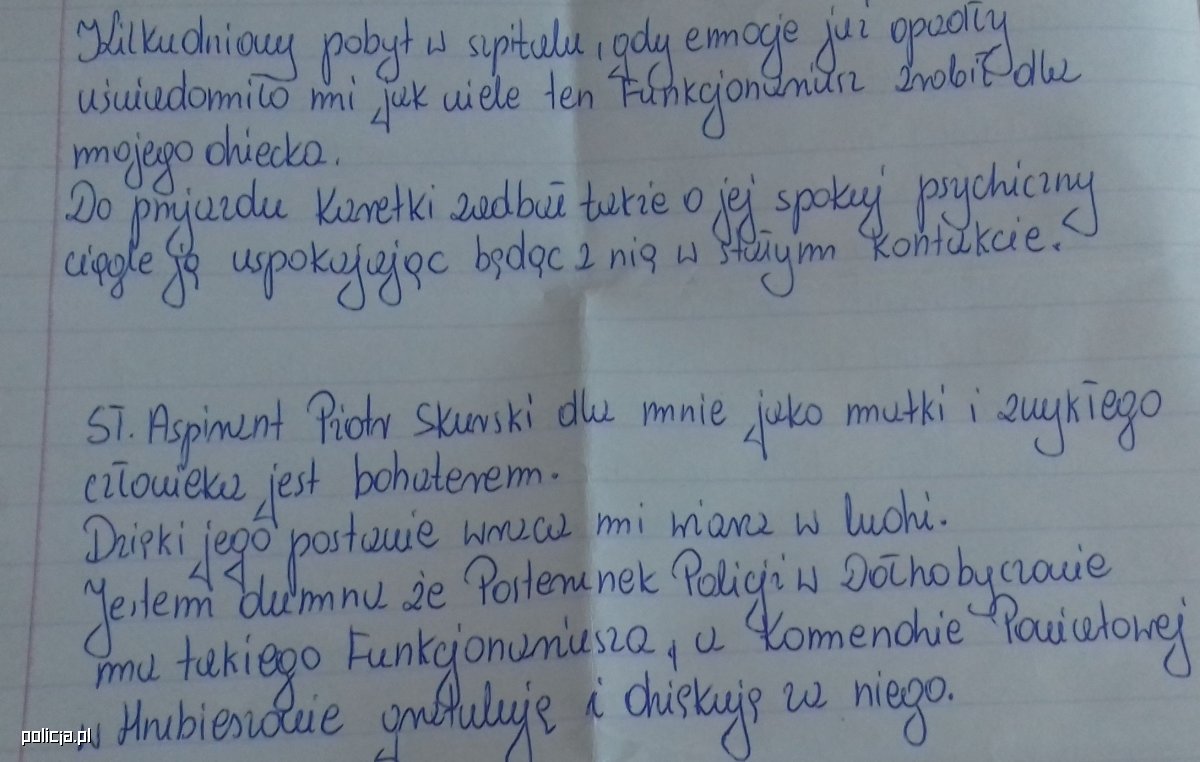 Kilkudniowy pobyt w szpitalu, gdy emocje już opadły
uświadomiło mi jak wiele ten Funkcjonariusz zrobił dla
mojego dziecka.
Do przyjazdu Karetki zadbał także o jej spokuj psychiczny
ciągle ją uspokajając będąc z nią w stałym kontakcie.
ST. Aspirant Piotr Skurski dla mnie jako matki i zwykłego
człowieka jest bohaterem.
Dzięki jego postawie wraca mi wiara w ludzi.
Jestem dumna że Posterunek Policji w Dołhobyczowie
ma takiego Funkcjonariusza, a Komendzie Powiatowej
w Hrubieszowie gratuluję i dziękuję za niego.
policja.pl